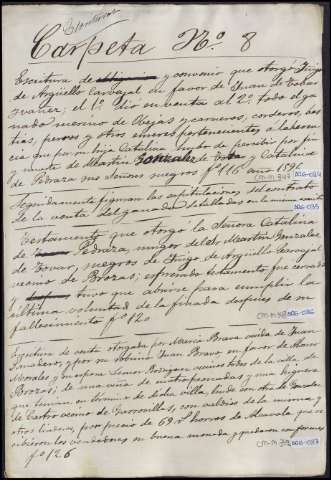 Carpeta Nº. 8
Escritura de y convenio que otorgó Iñigo
de Argüello Carbajal en favor de Juan de Tobar
; el 1º dio en venta al 2º todo el ga-
nado merino de Obejas y carneros, corderos, bes-
tias, perros y otros enseres pertenecientes a la heren-
cia que por su hija Catalina hubo de percibir por fin
muerte de Martin Gonzalez de y Catalina
de Pedraza sus Señores suegros fº 116 año 1596
CM-M 77
006-034
Seguidamente siguen las capitulaciones del contrato
de la venta del ganado detalladas en la misma
006-035
Testamento que otorgó la Señora Catalina
de Pedraza, muger del Sr Martin Gonzalez
de Tovar, suegros de Iñigo de Argüello Carvajal
vecino de Brozas; este testamento fue cerrado
y tuvo que abrirse para cumplir la
última voluntad de la finada despues de su
fallecimiento fº 120
CM-M 78
006-036
Escritura de venta otorgada por Maria Brava viuda de Juan
y por su sobrino Juan Bravo en favor de Alonso
Morales y su esposa Leonor Rodriguez vecinos todos de la villa de
Brozas; de una viña de cuatro peonadas y una higuera
que tenian en término de dicha villa, linde con otra de Gonzalo
de Castro vecino de Garrovillas, con valdios de la misma y
otros linderos, por precio de 69 horros de Alcavala que re-
cibieron los vendedores en buena moneda y quedaron conformes
fº 126
CM-M 79
006-037